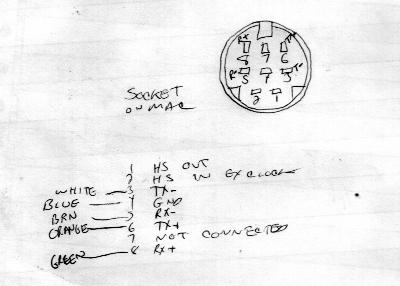 SOCKET
ON MAC
8 7 6
5 4 3
2 1
1 HS OUT
2 HS IN EX CLOCK
WHITE 3 TX-
BLUE 4 GND
BRN 5 RX-
ORANGE 6 TX+
7 NOT CONNECTED
GREEN 8 RX+